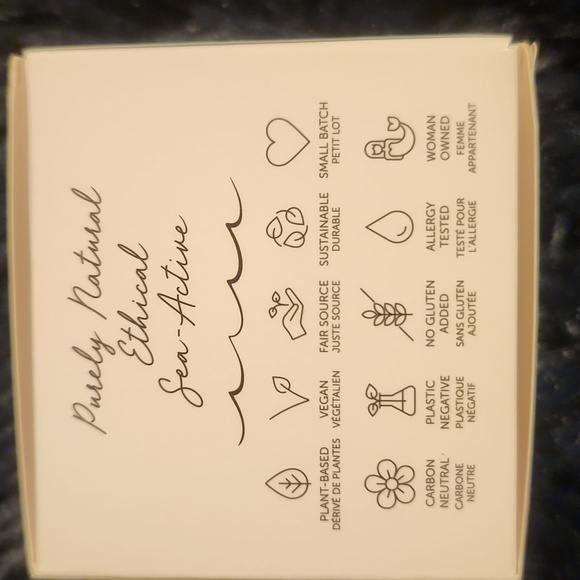 Purely Natural
Ethical
Sea-Active
PLANT-BASED
DÉRIVÉ DE PLANTES
VEGAN
VÉGÉTALIEN
FAIR SOURCE
JUSTE SOURCE
SUSTAINABLE
DURABLE
SMALL BATCH
PETIT LOT
CARBON
NEUTRAL
CARBONE
NEUTRE
PLASTIC
NEGATIVE
PLASTIQUE
NÉGATIF
NO GLUTEN
ADDED
SANS GLUTEN
AJOUTÉE
ALLERGY
TESTED
TESTÉ POUR
L'ALLERGIE
WOMAN
OWNED
FEMME
APPARTENANT